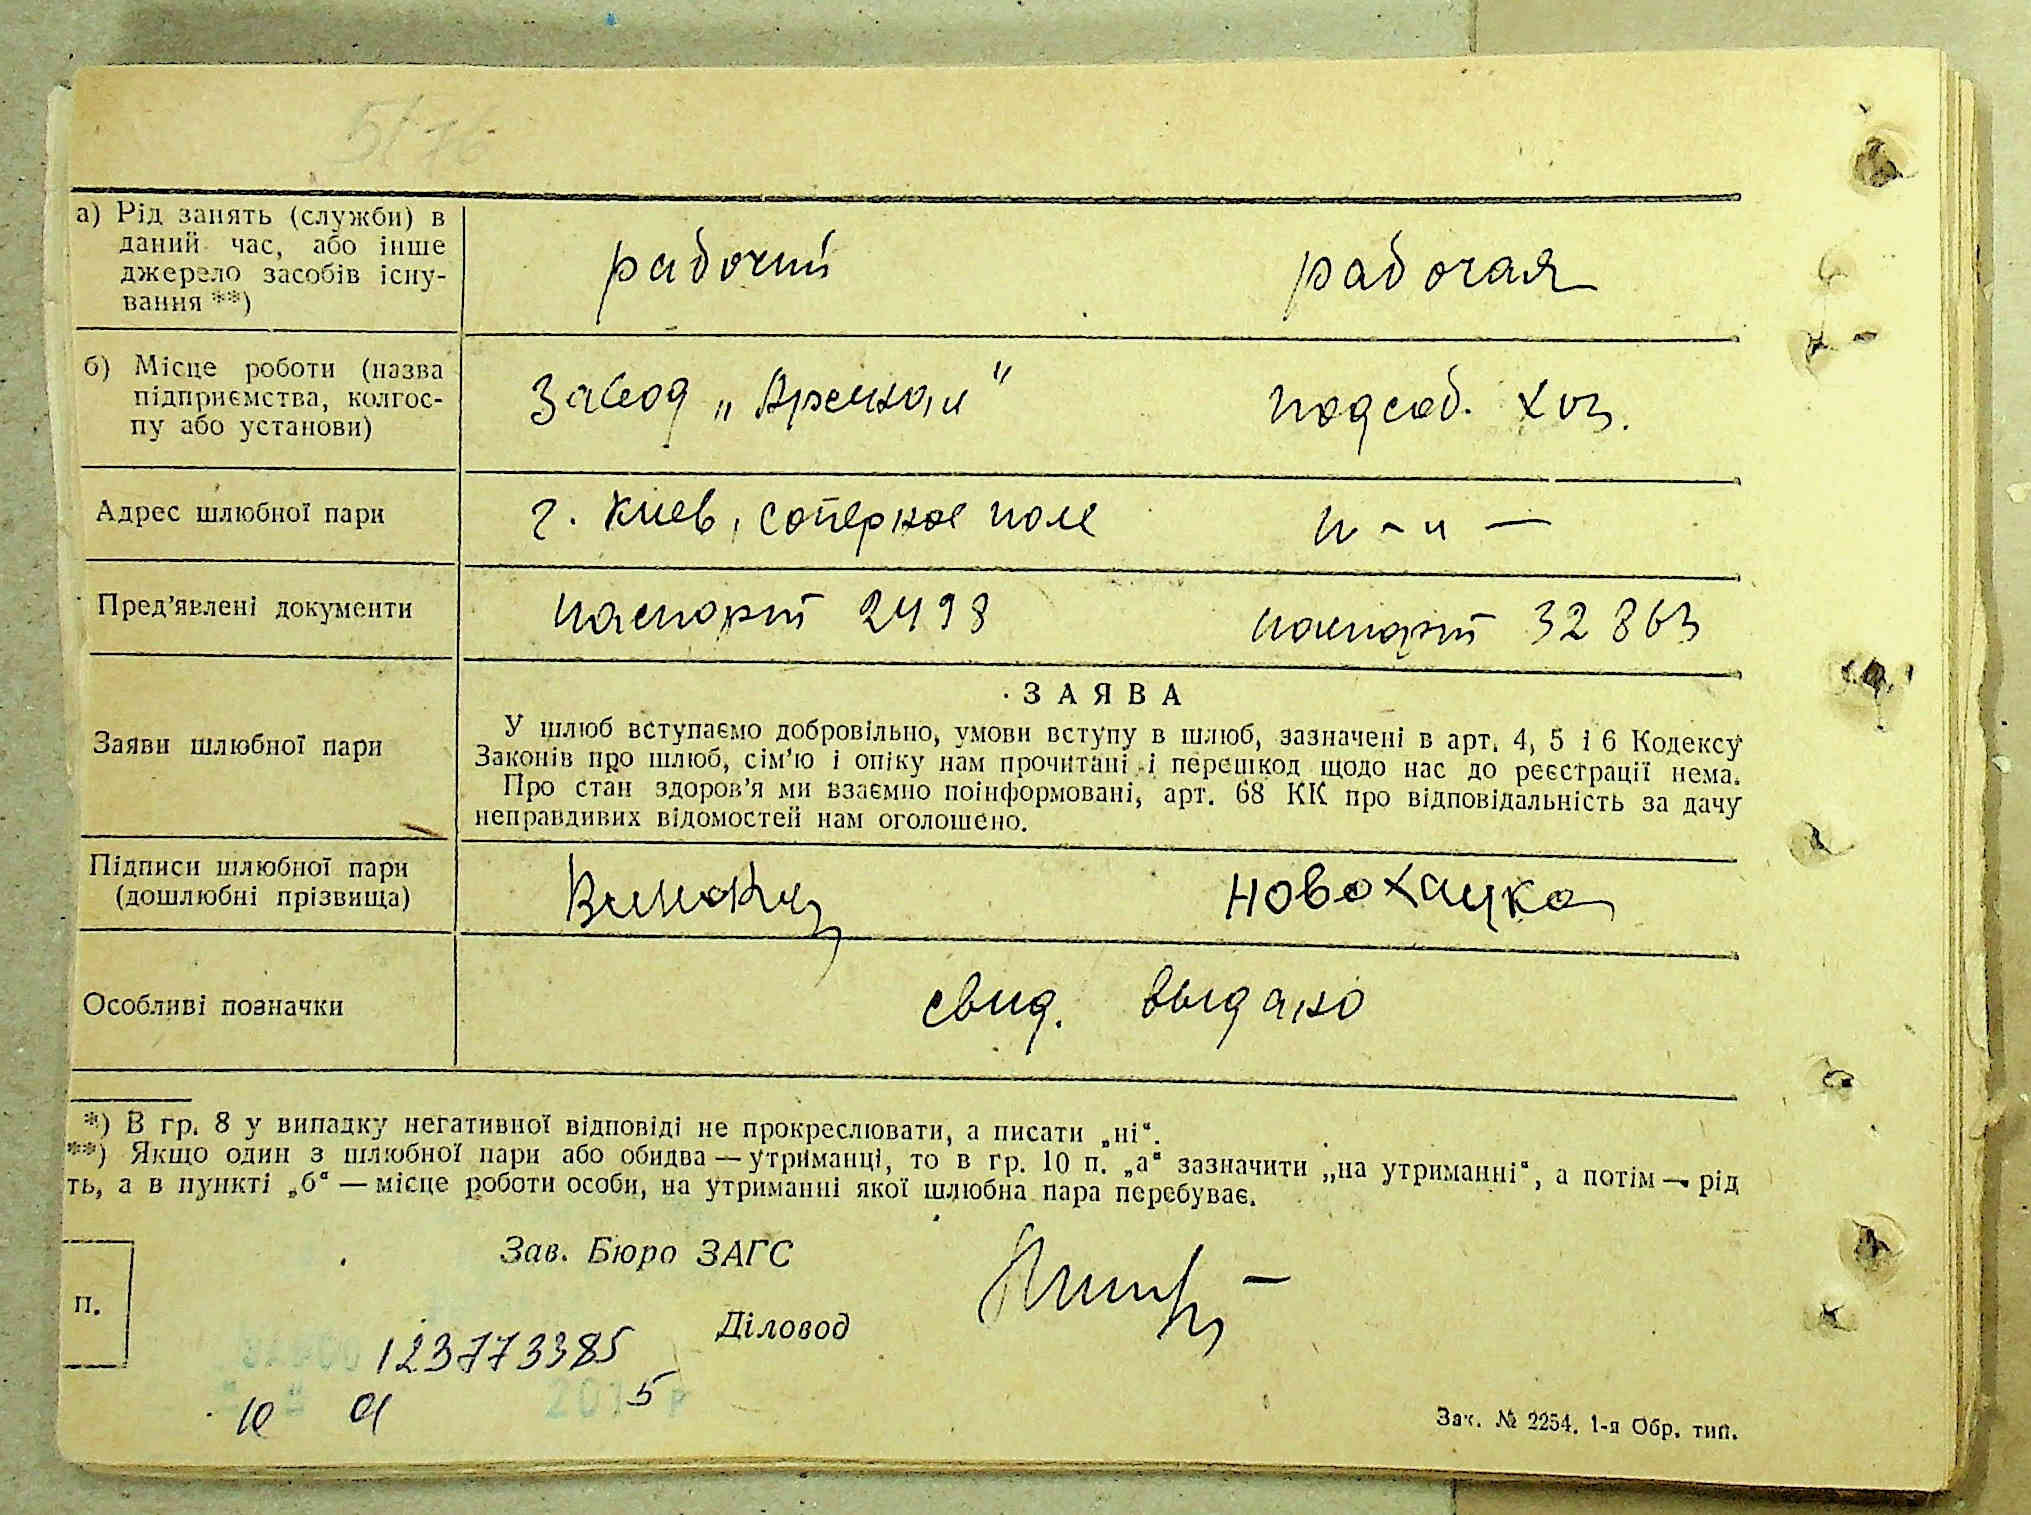 5/76
а) Рід занять (служби) в
даний час, або інше
джерело засобів існу-
вання **)
рабочий
рабочая
б) Місце роботи (назва
підприємства, колгос-
пу або установи)
Завод „Арсенал"
подсоб. хоз.
Адрес шлюбної пари
г. Киев, саперное поле
Пред'явлені документи
паспорт 2498
паспорт 32863
Заяви шлюбної пари
ЗАЯВА
У шлюб вступаємо добровільно, умови вступу в шлюб, зазначені в арт. 4, 5 і 6 Кодексу
Законів про шлюб, сім'ю і опіку нам прочитані і перешкод щодо нас до реєстрації нема.
Про стан здоров'я ми взаємно поінформовані, арт. 68 КК про відповідальність за дачу
неправдивих відомостей нам оголошено.
Підписи шлюбної пари
(дошлюбні прізвища)
Новохацка
Особливі позначки
свид. выдано
*) В гр. 8 у випадку негативної відповіді не прокреслювати, а писати „ні".
**) Якщо один з шлюбної пари або обидва — утриманці, то в гр. 10 п. „а" зазначити „на утриманні", а потім — рід
ть, а в пункті „б" — місце роботи особи, на утриманні якої шлюбна пара перебуває.
Зав. Бюро ЗАГС
п.
Діловод
123773385
10 01 2015 р
Зак. № 2254. 1-я Обр. тип.